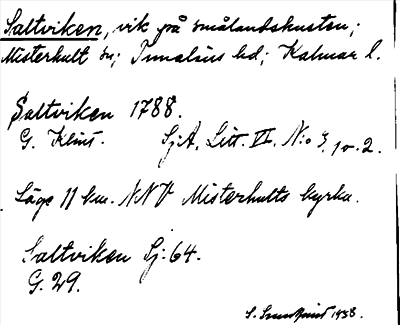 Saltviken, vik på smålandskusten;
Misterhult sn; Tunaläns hd; Kalmar l.
Saltviken 1788.
G. Klint. Sj.A. Litt. VI. N:o 3, 10.2.
Läge 11 km. NNV Misterhults kyrka.
Saltviken Sj: 64.
G. 29.
S. 1938.